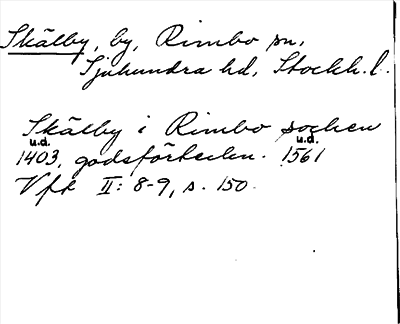 Skälby, by, Rimbo sn,
Sjuhundra hd, Stockh. l.
Skälby i Rimbo socken
u.d. u.d.
1403, godsförteckn. 1561
Vfk II: 8-9, s. 150.